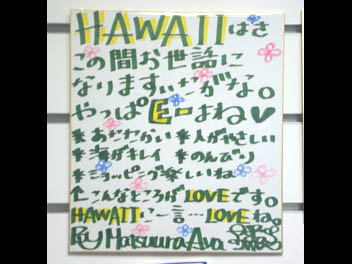 HAWAIIはさ
この間お世話に
なりますぃたがな。
やっぱEーよね♥
*あたたかい *人がやさしい
*海がキレイ *のんびり
*ショッピングが楽しいね
↑こんなところがLOVEです。
HAWAIIに一言…LOVEね。
By Matsuura Aya